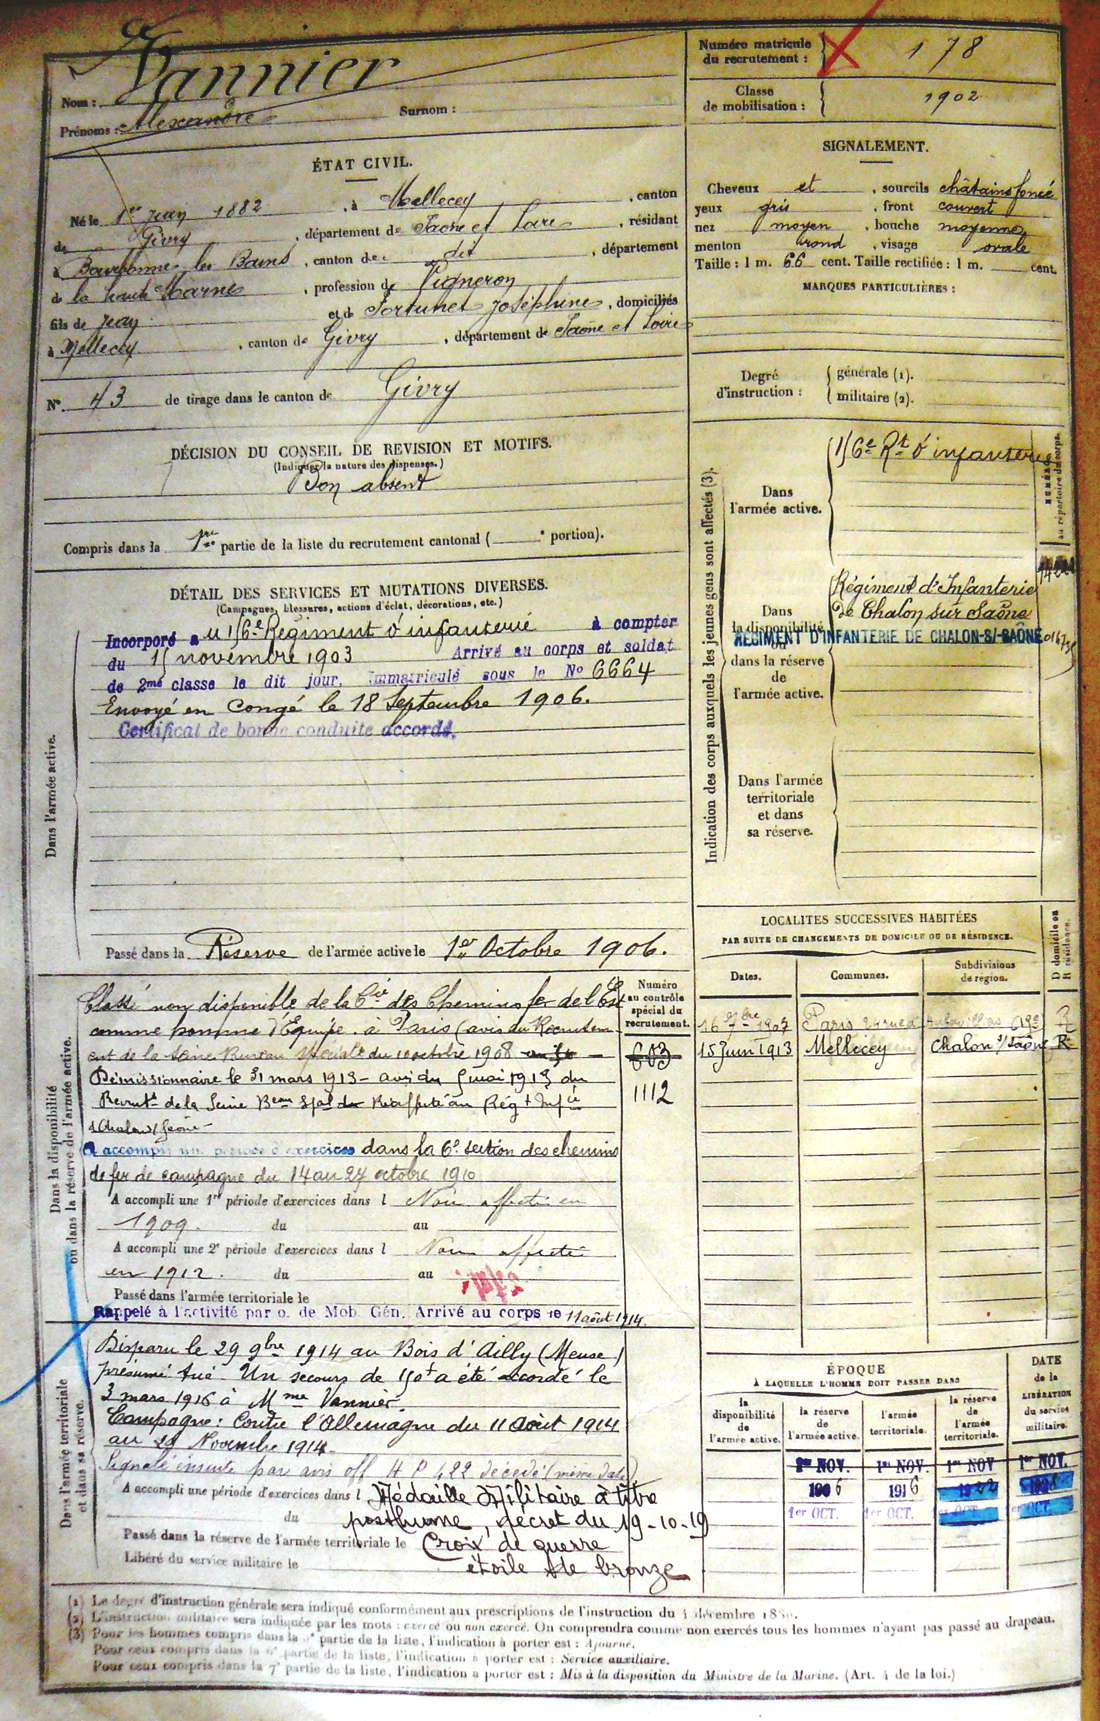 Nom : Vannier
Prénoms : Alexandre Surnom :
Numéro matricule du recrutement : 178
Classe de mobilisation : 1902
ÉTAT CIVIL.
Né le 1er Juin 1882, à Mellecey, canton
de Givry, département de Saône et Loire, résidant
à Bourbonne les Bains, canton de dit, département
de la haute Marne, profession de Vigneron
fils de Jean et de Fortunet Joséphine, domiciliés
à Mellecey, canton de Givry, département de Saône et Loire
N° 43 de tirage dans le canton de Givry
SIGNALEMENT.
Cheveux et, sourcils châtains foncé
yeux gris, front couvert
nez moyen, bouche moyenne
menton rond, visage ovale
Taille : 1 m. 66 cent. Taille rectifiée : 1 m. cent.
MARQUES PARTICULIÈRES :
Degré d'instruction : générale (1).
militaire (2).
DÉCISION DU CONSEIL DE REVISION ET MOTIFS.
(Indiquer la nature des dispenses.)
Bon absent
Compris dans la 1re partie de la liste du recrutement cantonal ( e portion).
DÉTAIL DES SERVICES ET MUTATIONS DIVERSES.
(Campagnes, blessures, actions d'éclat, décorations, etc.)
Dans l'armée active.
Incorporé au 156e Régiment d'infanterie à compter
du 15 novembre 1903 Arrivé au corps et soldat
de 2me classe le dit jour, immatriculé sous le No 6664
Envoyé en congé le 18 Septembre 1906.
Certificat de bonne conduite accordé.
Passé dans la Réserve de l'armée active le 1er Octobre 1906.
Indication des corps auxquels les jeunes gens sont affectés (3).
NUMÉROS au répertoire du corps.
Dans l'armée active.
156e Rt d'infanterie
Dans la disponibilité ou dans la réserve de l'armée active.
Régiment d'Infanterie
de Chalon sur Saône
RÉGIMENT D'INFANTERIE DE CHALON-S/-SAÔNE
Dans l'armée territoriale et dans sa réserve.
Dans la disponibilité ou dans la réserve de l'armée active.
Numéro au contrôle spécial du recrutement.
603
1112
Classé non disponible de la Cie des Chemins fer de l'Est
comme homme d'Équipe à Paris (avis du Recrutem
ent de la Seine Bureau spécial du 10 octobre 1908
Démissionnaire le 31 mars 1913 - avis du 5 mai 1913 du
Recrutt de la Seine Beau Spal Réaffecté au Régt Infie
s/Chalon s/Saône
A accompli une période d'exercices dans la 6e section des chemins
de fer de campagne du 14 au 27 octobre 1910
A accompli une 1re période d'exercices dans l Non affecté en
1909. du au
A accompli une 2e période d'exercices dans l Non affecté
en 1912. du au
Passé dans l'armée territoriale le
Rappelé à l'activité par o. de Mob. Gén. Arrivé au corps le 11 août 1914.
Dans l'armée territoriale et dans sa réserve.
Disparu le 29 9bre 1914 au Bois d'Ailly (Meuse)
présumé tué. Un secours de 150f a été accordé le
3 mars 1916 à Mme Vannier.
Campagne : Contre l'Allemagne du 11 Août 1914
au 29 Novembre 1914.
Signalé ensuite par avis off HP 422 décédé (même date)
A accompli une période d'exercices dans l Médaille Militaire à titre
du posthume, décret du 19-10-19
Passé dans la réserve de l'armée territoriale le Croix de guerre
Libéré du service militaire le étoile de bronze
LOCALITÉS SUCCESSIVES HABITÉES
PAR SUITE DE CHANGEMENTS DE DOMICILE OU DE RÉSIDENCE.
Dates. Communes. Subdivisions de région. D domicile ou R résidence.
16 7bre 1907 Paris R
15 Juin 1913 Mellecey Chalon s/Saône R
ÉPOQUE
À LAQUELLE L'HOMME DOIT PASSER DANS
la disponibilité de l'armée active.
la réserve de l'armée active.
l'armée territoriale.
la réserve de l'armée territoriale.
DATE de la LIBÉRATION du service militaire.
1er NOV. 1er NOV. 1er NOV 1er NOV.
1906 1916 1922 1928
1er OCT. 1er OCT. 1er OCT. 1er OCT.
(1) Le degré d'instruction générale sera indiqué conformément aux prescriptions de l'instruction du 4 décembre
(2) L'instruction militaire sera indiquée par les mots : exercé ou non exercé. On comprendra comme non exercés tous les hommes n'ayant pas passé au drapeau.
(3) Pour les hommes compris dans la 5e partie de la liste, l'indication à porter est : Ajourné.
Pour ceux compris dans la 6e partie de la liste, l'indication à porter est : Service auxiliaire.
Pour ceux compris dans la 7e partie de la liste, l'indication à porter est : Mis à la disposition du Ministre de la Marine. (Art. 4 de la loi.)